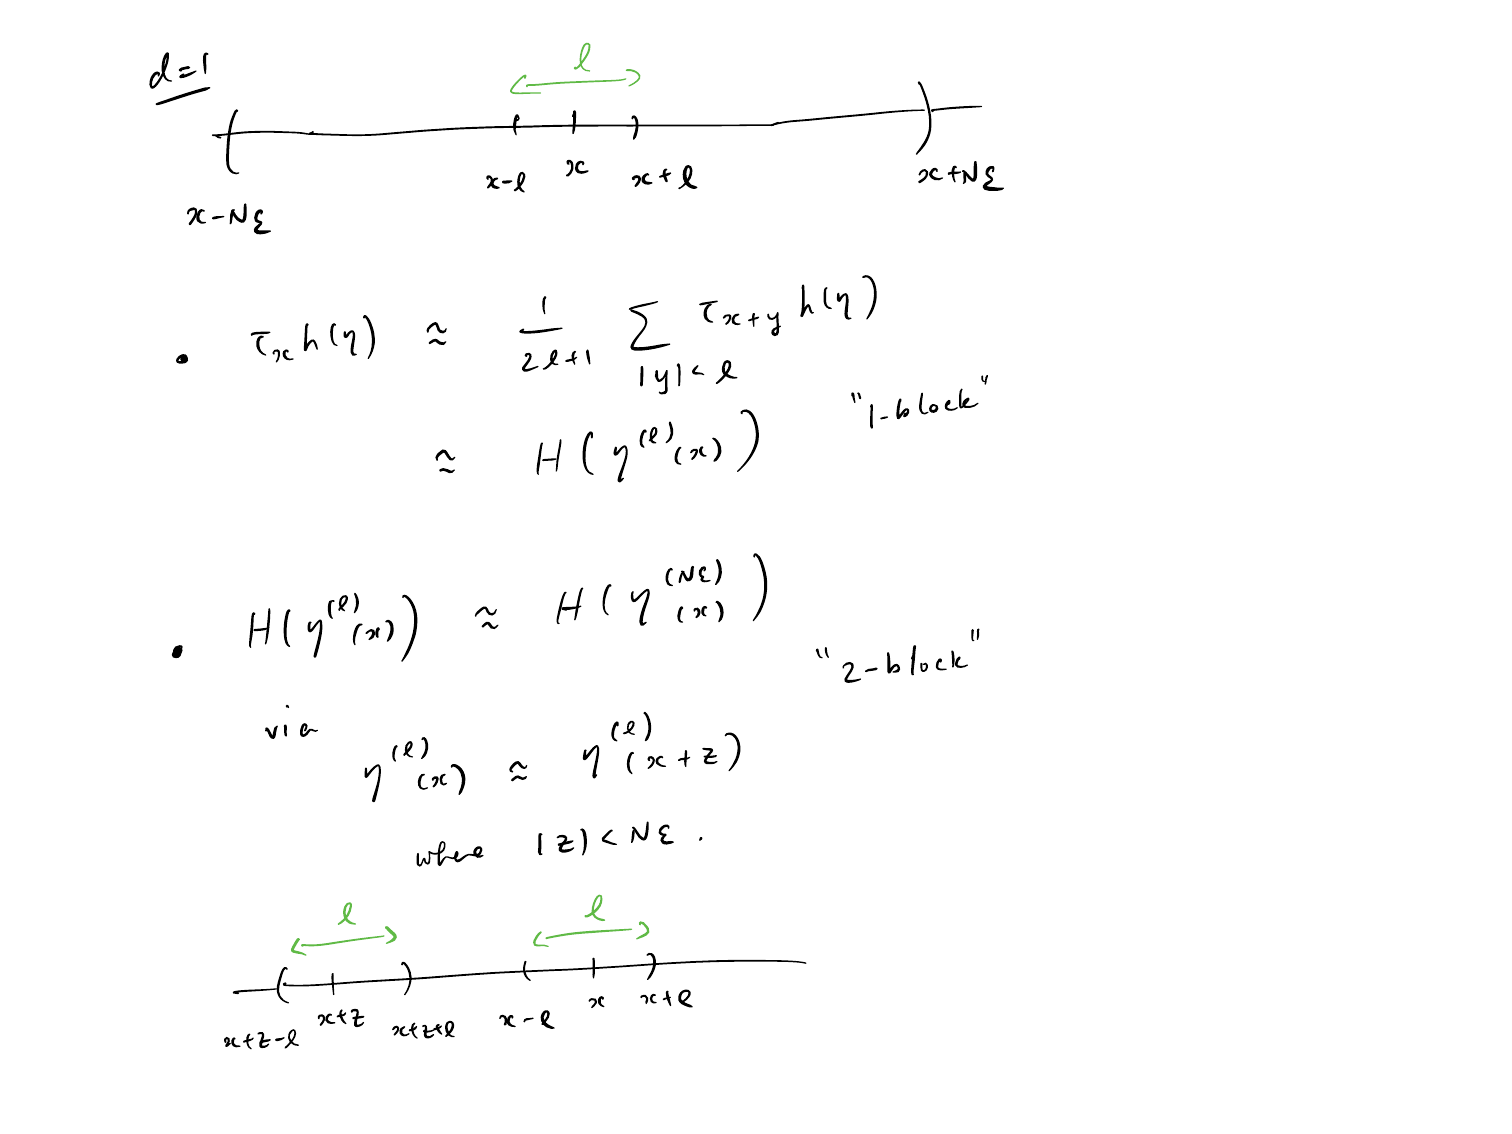 d=1
ℓ
x-ℓ x x+ℓ
x-Nε x+Nε
• τ_x h(η) ≈ 1/(2ℓ+1) ∑_{|y|<ℓ} τ_{x+y} h(η)
≈ H(η^{(ℓ)}(x)) "1-block"
• H(η^{(ℓ)}(x)) ≈ H(η^{(Nε)}(x))
"2-block"
via
η^{(ℓ)}(x) ≈ η^{(ℓ)}(x+z)
where |z|<Nε.
ℓ ℓ
x+z-ℓ x+z x+z+ℓ x-ℓ x x+ℓ